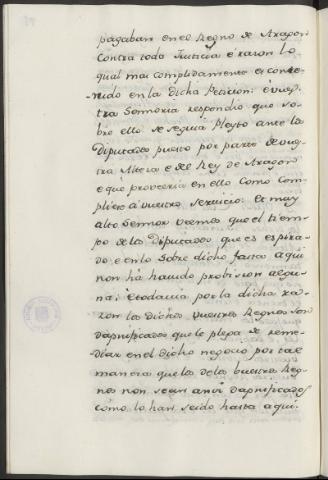 pagaban en el Regno de Aragon
Contra toda Justicia é razon lo
qual mas complidamente es conte-
nido en la dicha Peticion: é vues-
tra Sennoria respondió que so-
bre ello se seguia Pleyto ante los
Diputados puesto por parte de vues-
tra Alteza e del Rey de Aragon
e que proveeria en ello como com-
pliese á vuestro servicio: Et muy
alto Sennor veemos que el tiem-
po de los Diputados que es espira-
do e en lo sobre dicho fasta aqui
non há havido probision algu-
na; é todavia por la dicha ra-
zon los dichos vuestros Regnos son
dapnificados que le plega de reme-
diar en el dicho negocio por tal
manera que los de los vuestros Reg-
nos non sean ansi dapnificados
como lo han seido hasta aqui.